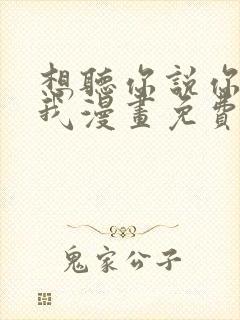 想聽你說你
我漫畫免費
鬼家公子